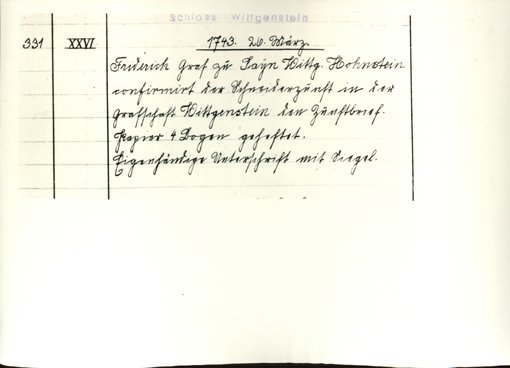 Schloss Wittgenstein
331 XXVI 1743. 26. März.
Frederick Graf zu Sayn Wittg. Hohnstein
confirmirt der Schneiderzunft in der
Grafschaft Wittgenstein den Zunftbrief.
Papier 4 Bogen geheftet.
Eigenhändige Unterschrift mit Siegel.